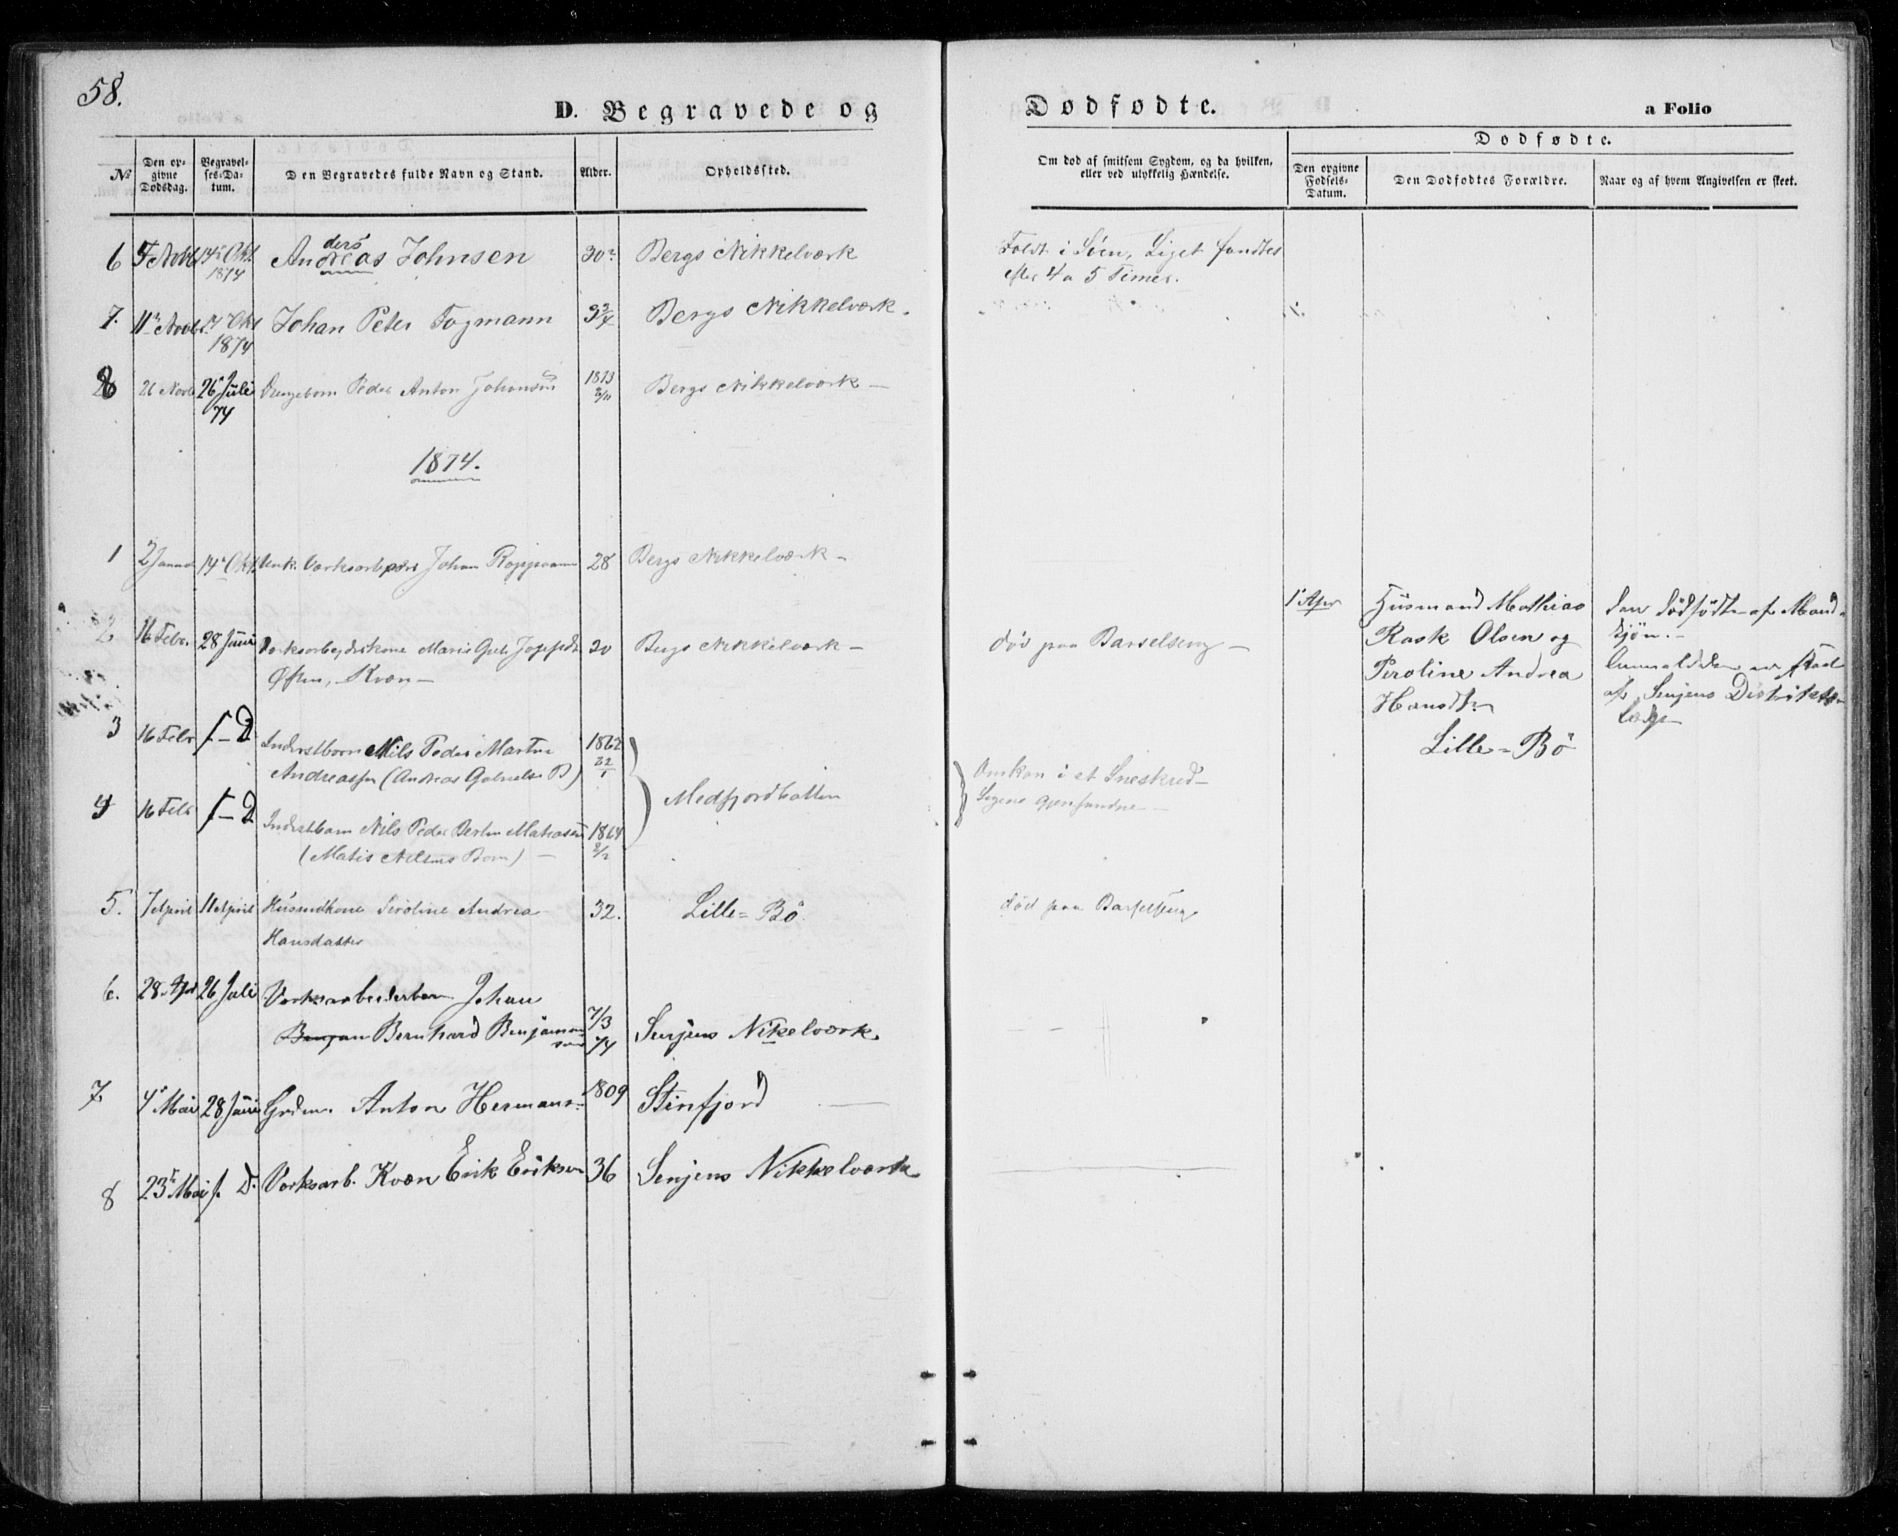 58.
D. Begravede og
Dødfødte.
a Folio
No
Den opgivne Dødsdag.
Begravelses-Datum.
Den Begravedes fulde Navn og Stand.
Alder.
Opholdssted.
Om død af smitsom Sygdom, og da hvilken, eller ved ulykkelig Hændelse.
Dødfødte.
Den opgivne Fødsels-Datum.
Den Dødfødtes Forældre.
Naar og af hvem Angivelsen er skeet.
6 Novb 14 Okt. 1874 Andreas ders Johnsen 30 Bergs Nikkelværk Faldt i Söen, Liget fandtes
efter 4 a 5 Timer.
7. 11 Novb Okt 1874 Johan Peter Togmann 9 3/4 Bergs Nikkelværk.
8 26 Novb 26 Juli 74 Drengebarn Peder Anton Johansen 1873 Bergs Nikkelværk –
1874.
1 2 Januar 14 Okt. Johan 28 Bergs Nikkelværk –
2 16 Febr. 28 Juni Værksarbeiderkone Marie 20 Bergs Nikkelværk – död paa Barselseng –
Kvæn –
1 Apr Huusmand Mathias
Rask Olsen og
Peroline Andrea
Hansdtr
Lille-Bö
Een dödfödt af Mand-
kjön. –
Anmeldelsen er skeet
af Senjens Distrikts-
læge
3 16 Febr s. D Inderstbarn Nils Peder Martin 1862
Andreassen (Andreas Gabriels. B)
Medfjordbotten
Omkom i et Sneskred –
4 16 Febr s. D Inderstbarn Nils Peder 1864
(Matis Nilsens Barn) –
5. 7 April 11 April Husmdkone Peroline Andrea 32. Lille-Bö. död paa Barselseng
Hansdatter
6. 28 Apr 26 Juli Værksarbeiderbarn Johan
Bernhard Benjamin-
sen 7/3 74 Senjens Nikelværk.
7 4 Mai 28 Juni Grdm. Anton Hermans. 1809 Stinfjord
8 23 Mai s. D. Værksarb. Kvæn Erik Eriksen 36 Senjens Nikkelværk